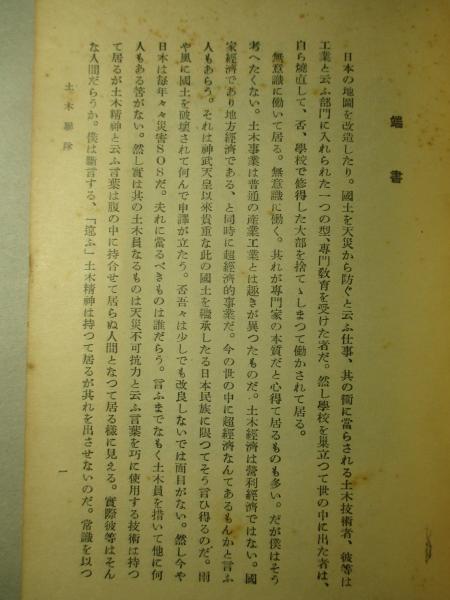 端書
日本の地圖を改造したり。國土を天災から防ぐと云ふ仕事、其の衝に當らされる土木技術者、彼等は
工業と云ふ部門に入れられた一つの型、專門敎育を受けた者だ。然し學校を巣立つて世の中に出た者は、
自ら燒直して、否、學校で修得した大部を捨てゝしまつて働かされて居る。
無意識に働いて居る。無意識に働く。其れが專門家の本質だと心得て居るものも多い。だが僕はそう
考へたくない。土木事業は普通の産業工業とは趣きが異つたものだ。土木經濟は營利經濟ではない。國
家經濟であり地方經濟である、と同時に超經濟的事業だ。今の世の中に超經濟なんてあるもんかと言ふ
人もあらう。それは神武天皇以來貴重な此の國土を繼承したる日本民族に限つてそう言ひ得るのだ。雨
や風に國土を破壞されて何んで申譯が立たう。否吾々は少しでも改良しないでは面目がない。然し今や
日本は毎年々々災害SOSだ。夫れに當るべきものは誰だらう。言ふまでもなく土木員を措いて他に何
人もある筈がない。然し實は其の土木員なるものは天災不可抗力と云ふ言葉を巧に使用する技術は持つ
て居るが土木精神と云ふ言葉は腹の中に持合せて居らぬ人間となつて居る樣に見える。實際彼等はそん
な人間だらうか。僕は斷言する、「違ふ」土木精神は持つて居るが其れを出させないのだ。常識を以つ
土木
一